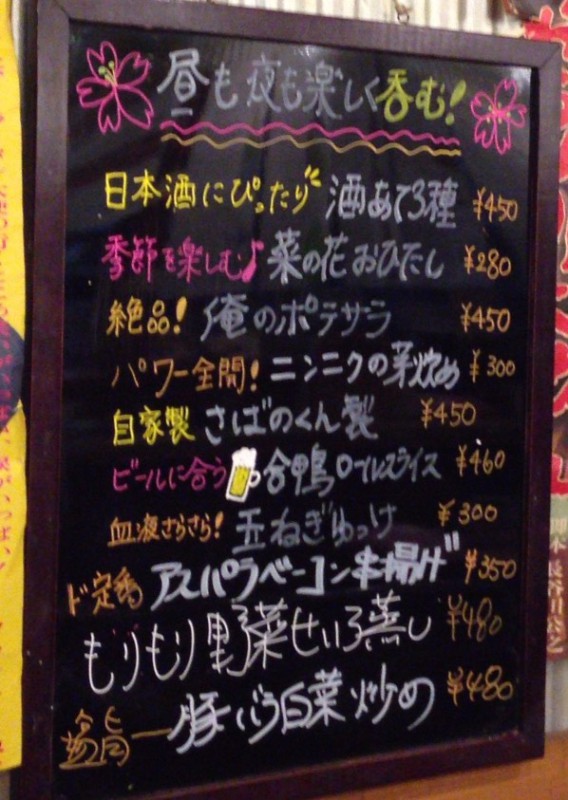 昼も夜も楽しく呑む!
日本酒にぴったり 酒あて3種 ¥450
季節を楽しむ♪ 菜の花おひたし ¥280
絶品! 俺のポテサラ ¥450
パワー全開! ニンニクの芽炒め ¥300
自家製 さばのくん製 ¥450
ビールに合う 合鴨ロールスライス ¥460
血液さらさら! 玉ねぎゆっけ ¥300
ド定番 アスパラベーコン串揚げ ¥350
もりもり野菜せいろ蒸し ¥480
豚バラ白菜炒め ¥480